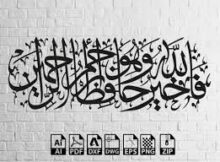 فالله خير حافظا وهو أرحم الراحمين
AI PDF DXF DWG EPS PNG ZIP